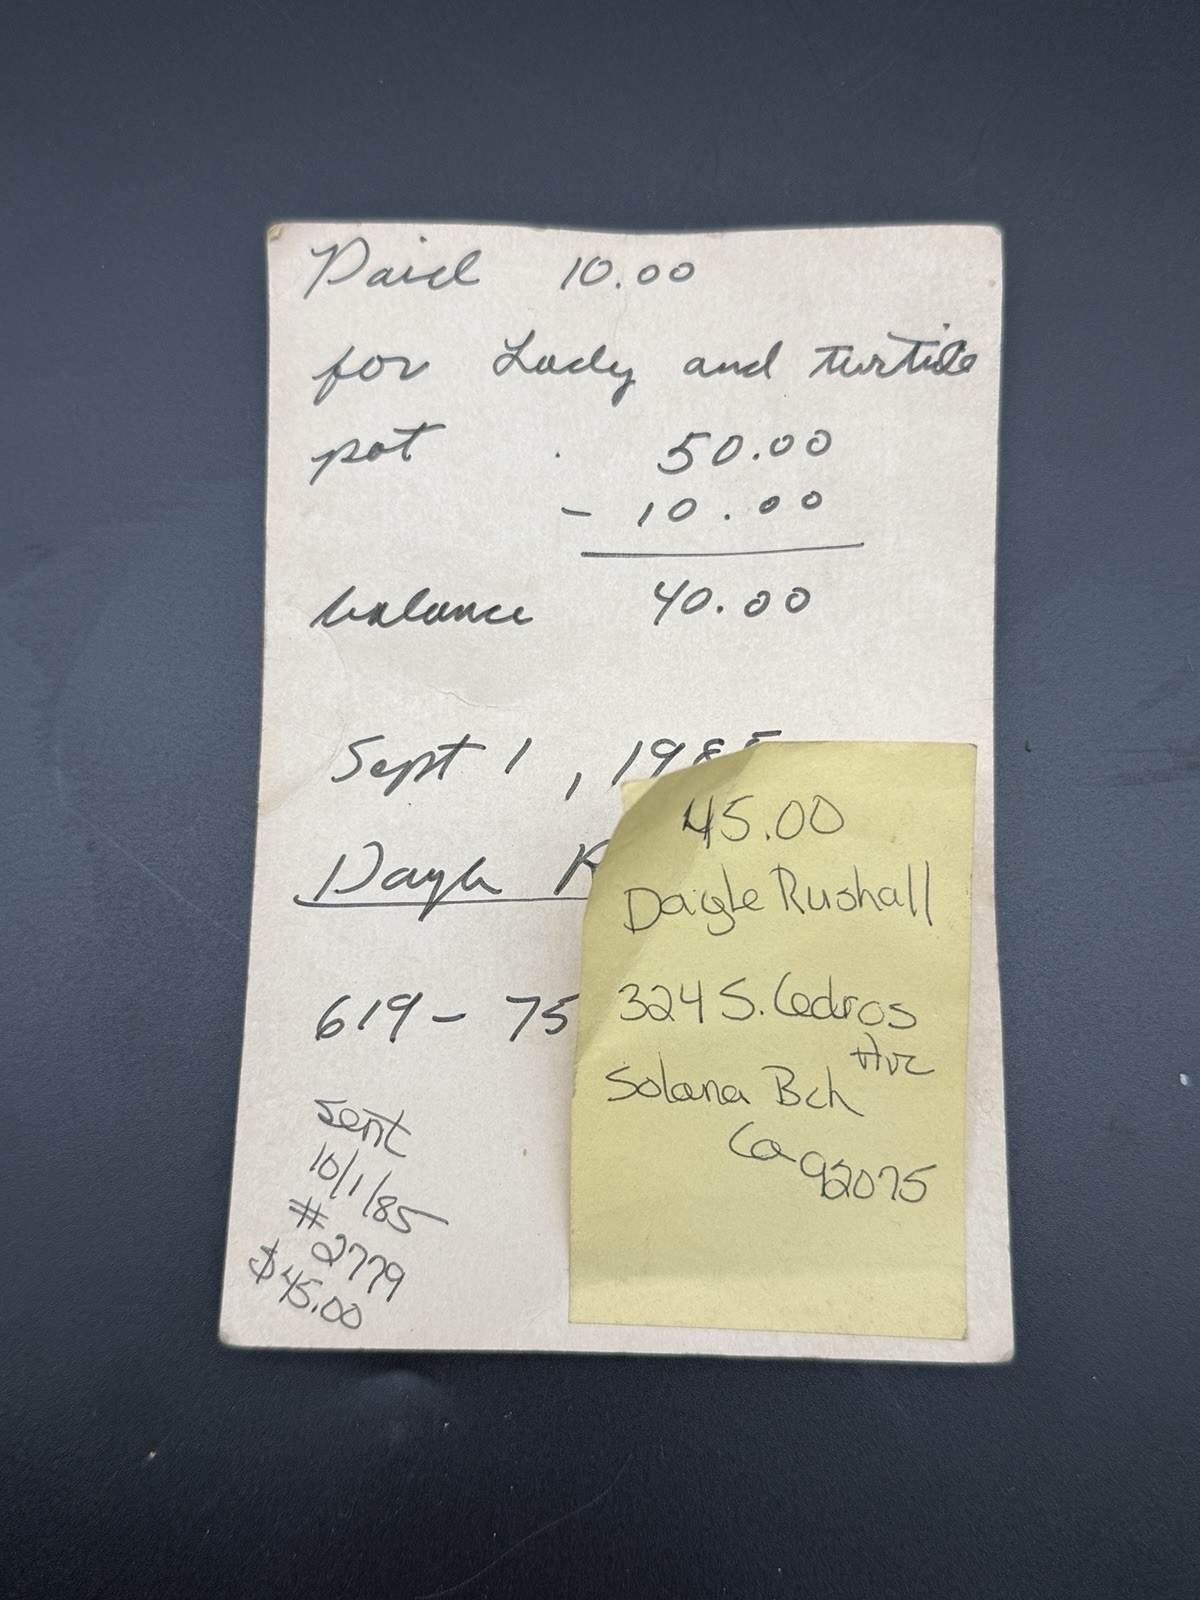 Paid 10.00
for Lady and turtle
pot 50.00
- 10.00
balance 40.00
Sept 1, 1985
Dayle R
619- 75
sent
10/1/85
# 2779
$45.00
45.00
Dayle Rushall
324 S. Cedros
Ave
Solana Bch
Ca 92075